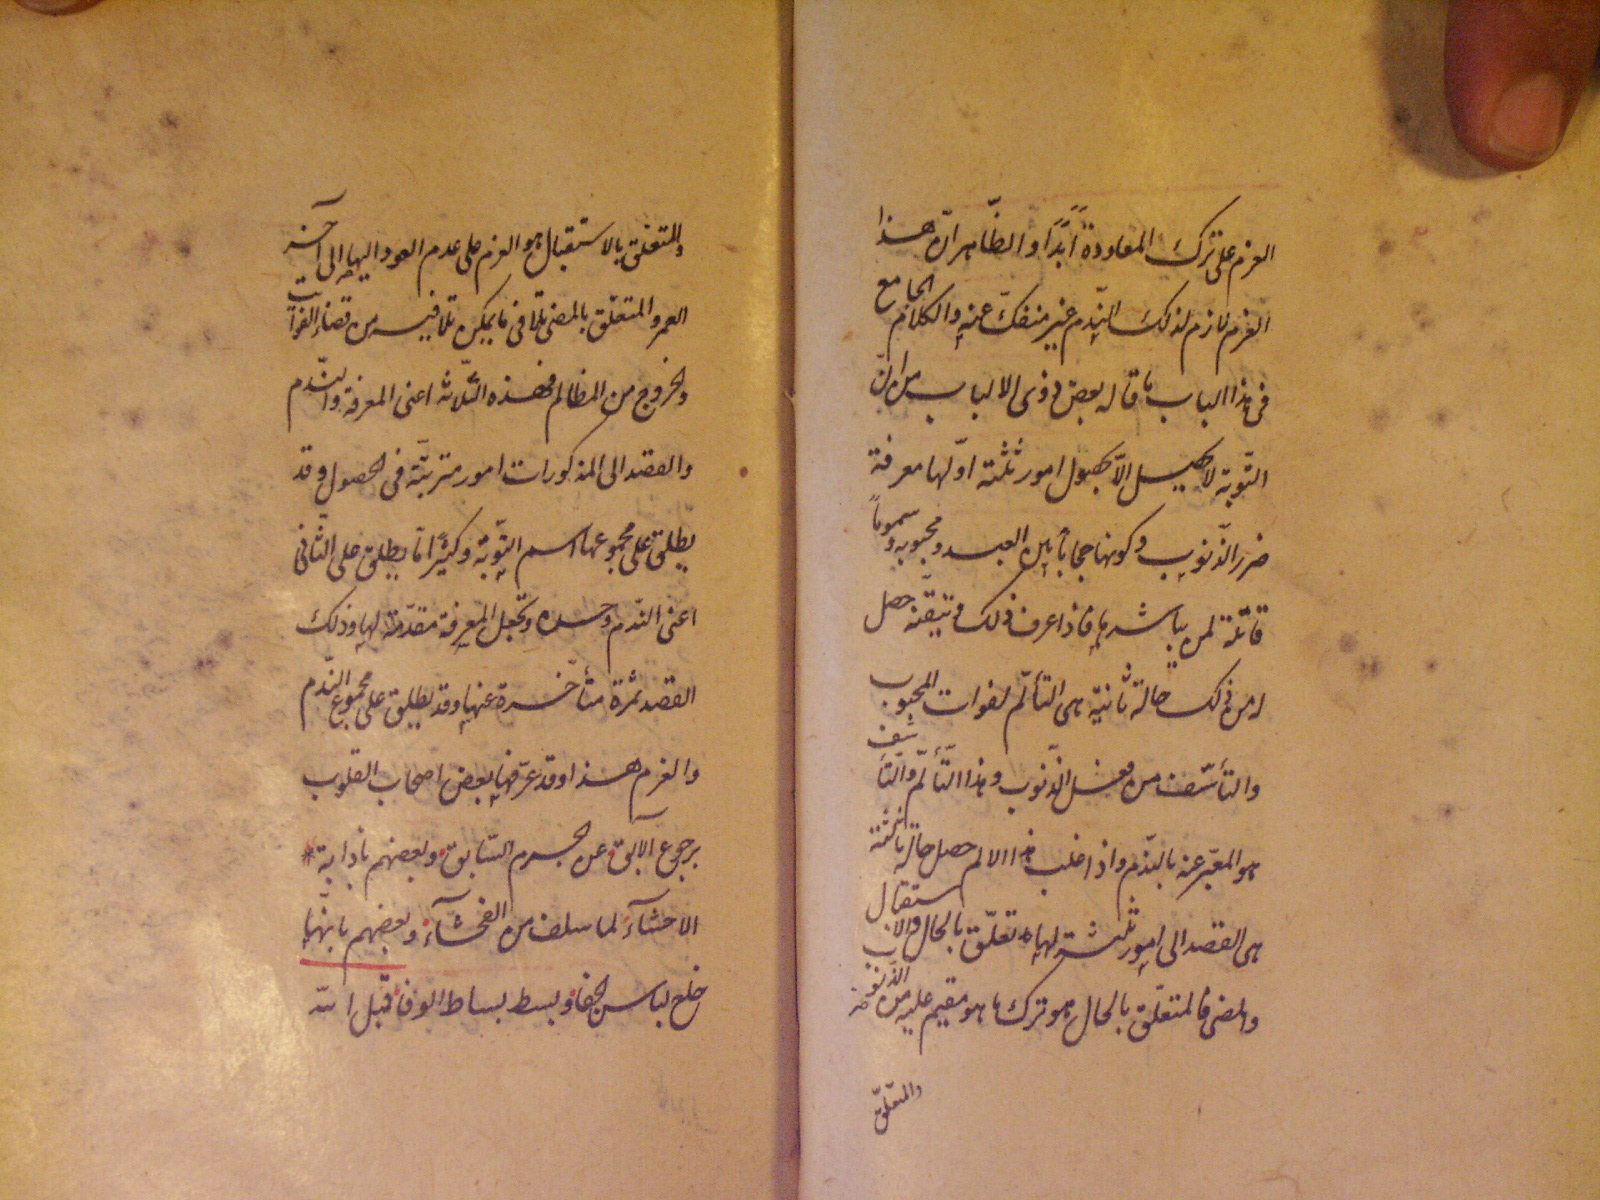 العزم على ترك المعاودة ابدًا والظّاهر انّ هذا
العزم لازم لذلك النّدم غير منفكّ عنه والكلام الجامع
فى هذا الباب ما قاله بعض ذوى الالباب من انّ
التّوبة لا يحصل الّا بحصول امور ثلثة اوّلها معرفة
ضرر الذّنوب وكونها حجابًا بين العبد ومحبوبه وسمومًا
قاتلة لمن يباشرها فاذا عرف ذلك وتيقّنه حصل
له من ذلك حالة ثانية هى التألّم لفوات المحبوب
والتأسّف من فعل الذّنوب وهذا التّألّم والتّأسّف
هو المعبّر عنه بالنّدم واذا غلب هذا الالم حصل حالة ثالثة
هى القصد الى امور ثلثة لها تعلّق بالحال والاستقبال
والمضى فالمتعلّق بالحال هو ترك ما هو مقيم عليه من الذّنوب
والمتعلّق
والمتعلّق بالاستقبال هو العزم على عدم العود اليها الى آخر
العمر والمتعلّق بالمضى تلافى ما يمكن تلافيه من قضاء الفوائت
والخروج من المظالم فهذه الثّلاثة اعنى المعرفة والنّدم
والقصد الى المذكورات امور مترتبّة فى الحصول وقد
يطلق على مجموعها اسم التّوبة وكثيرًا ما يطلق على الثّانى
اعنى النّدم وحده وتجعل المعرفة مقدّمة لها وذلك
القصد ثمرة متأخّرة عنها وقد يطلق على مجموع النّدم
والعزم هذا وقد عرّفها بعض اصحاب القلوب
برجوع الآبق عن الجرم السّابق وبعضهم باذابة
الاحشآء لما سلف من الفحشآء وبعضهم بانّها
خلع لباس الجفاء وبسط بساط الوفاء قبل الله